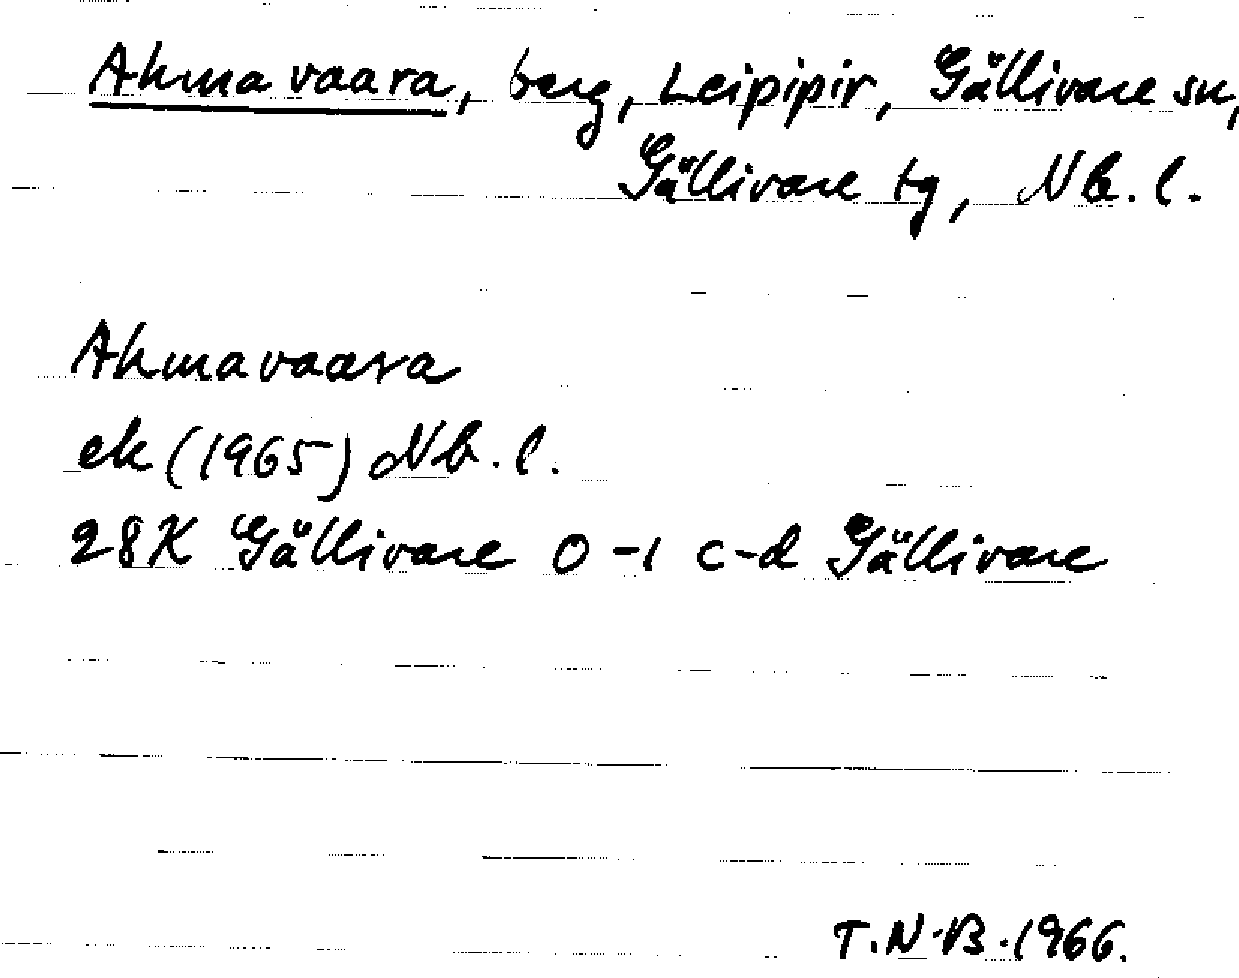 Ahmavaara, berg, Leipipir, Gällivare sn,
Gällivare tg, Nb. l.
Ahmavaara
ek (1965) Nb. l.
28K Gällivare 0-1 c-d Gällivare
T.N.B. 1966.